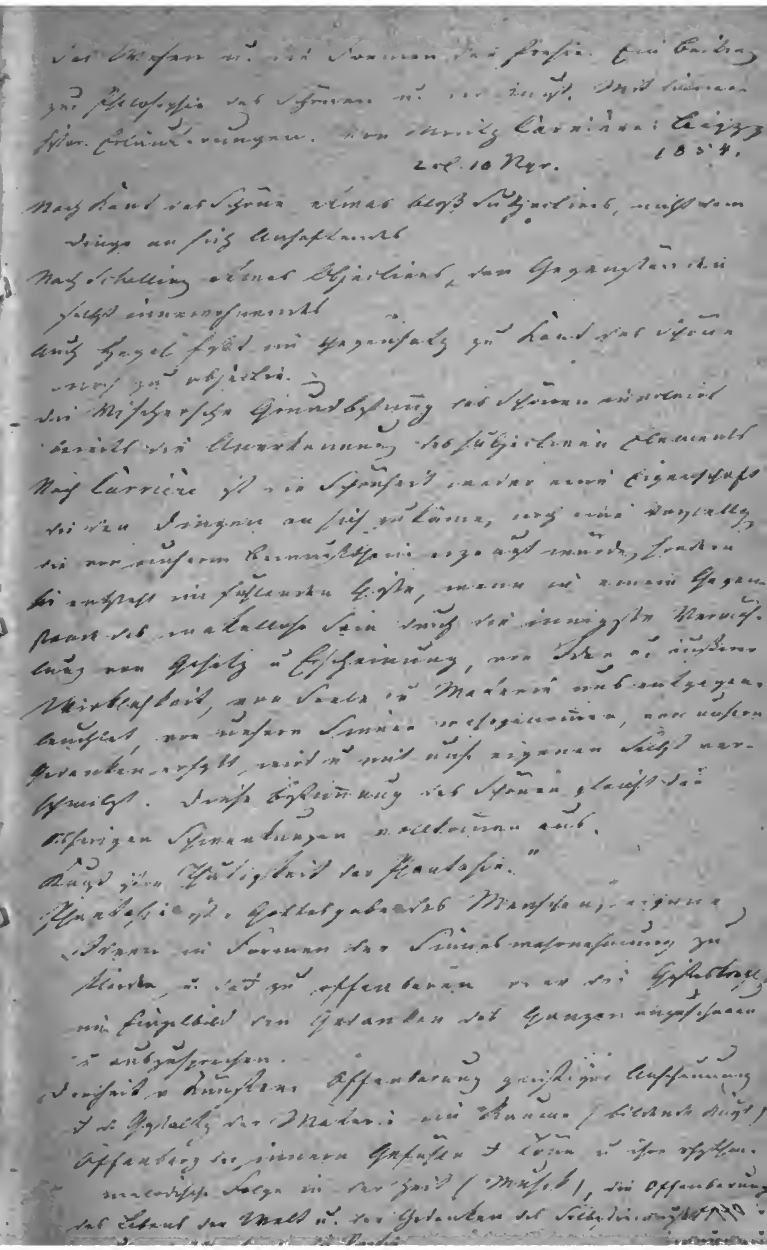 Das Wesen u. die Formen der Poesie. Ein Beitrag
zur Philosophie des Schönen u. der Kunst. Mit literar-
histor. Erläuterungen. Von Moritz Carrière: Leipzg
1854.
2 rl. 10 Ngr.
Nach Kant das Schöne etwas bloß Subjectives, nicht dem
Dinge an sich Anhaftendes
Nach Schelling etwas Objectives, den Gegenständen
selbst innewohnendes
Auch Hegel faßt im Gegensatz zu Kant das Schöne
noch zu objectiv.
Die Vischersche Grundbestimmung des Schönen involvirt
bereits die Anerkennung des subjectiven Elements
Nach Carrière ist die Schönheit weder eine Eigenschaft
die den Dingen an sich zukäme, noch eine Vorstellg
die von unserm Bewußtsein erzeugt würde, sondern
sie entsteht im fühlenden Geiste, wenn in einem Gegen-
stand das makellose Sein durch die innigste Vermäh-
lung von Gesetz u Erscheinung, von Idee u. äußerer
Wirklichkeit, von Seele u Materie uns entgegen-
leuchtet, von unsern Sinnen wahrgenommen, von unsern
Gedanken erfaßt wird u mit uns. eigenen Selbst ver-
schmilzt. Diese Bestimmung des Schönen gleicht die
bisherigen Schwankungen vollkommen aus.
Kunst ihm Thätigkeit der Phantasie."
Phantasie ist Gottesgabe des Menschen, eigene
Ideen in Formen der Sinneswahrnehmung zu
kleiden, u.
im Einzelbild den Gedanken des Ganzen anzuschauen
u auszusprechen.
Dreiheit v Künsten: Offenbarung geistiger Anschauung
d. die Gestaltg der Materie im Raume (bildende Kunst)
Offenbarg des innern Gefühls d Töne u ihre rhythm.
melodische Folge in der Zeit (Musik), die Offenbarung
des Lebens der Welt u. der Gedanken des